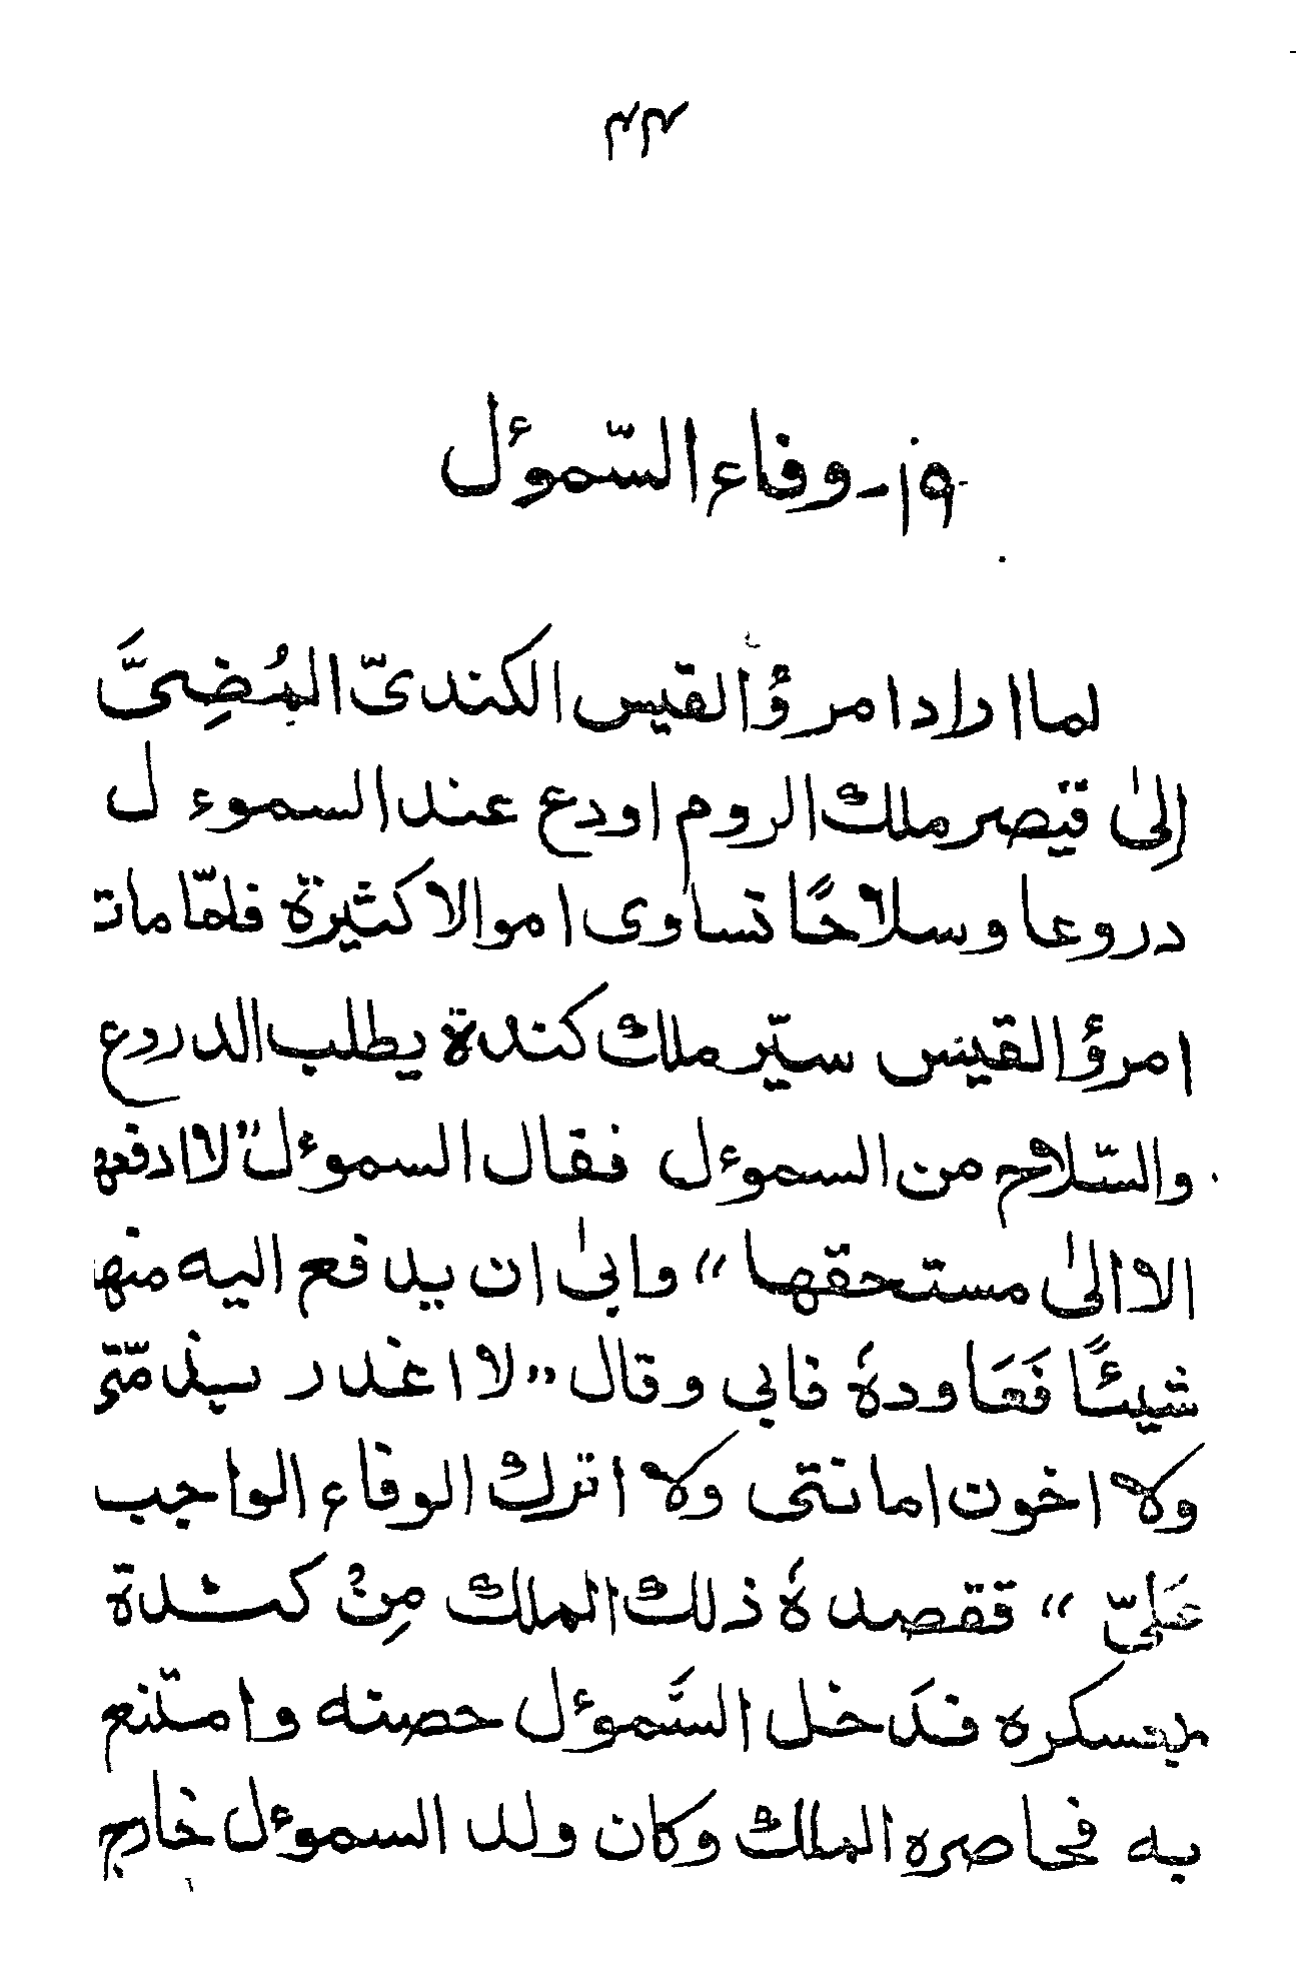 ۱۹ - وفاء السّموءل
لما اراد امرؤ القيس الكندىّ المُضِىَّ
إلىٰ قيصر ملك الروم اودع عند السموءل
دروعا وسلاحًا تساوى اموالا كثيرة فلمّا مات
امرؤ القيس سيّر ملك كندة يطلب الدروع
والسّلاح من السموءل فقال السموءل "لا ادفعها
الا الىٰ مستحقها" وابىٰ ان يدفع اليه منها
شيئًا فَعَاوده فابي وقال "لا اغدر بذمّتى
ولا اخون امانتى ولا اترك الوفاء الواجب
عَلىّ" فقصده ذلك الملك مِنْ كندة
بعسكره فدَخل السَّموءل حصنه وامتنع
به فحاصره الملك وكان ولد السموءل خارج